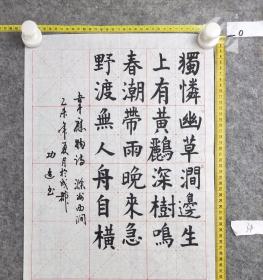 獨憐幽草澗邊生
上有黃鸝深樹鳴
春潮帶雨晚來急
野渡無人舟自橫
韋應物詩 滁州西澗
乙未年夏月於成都